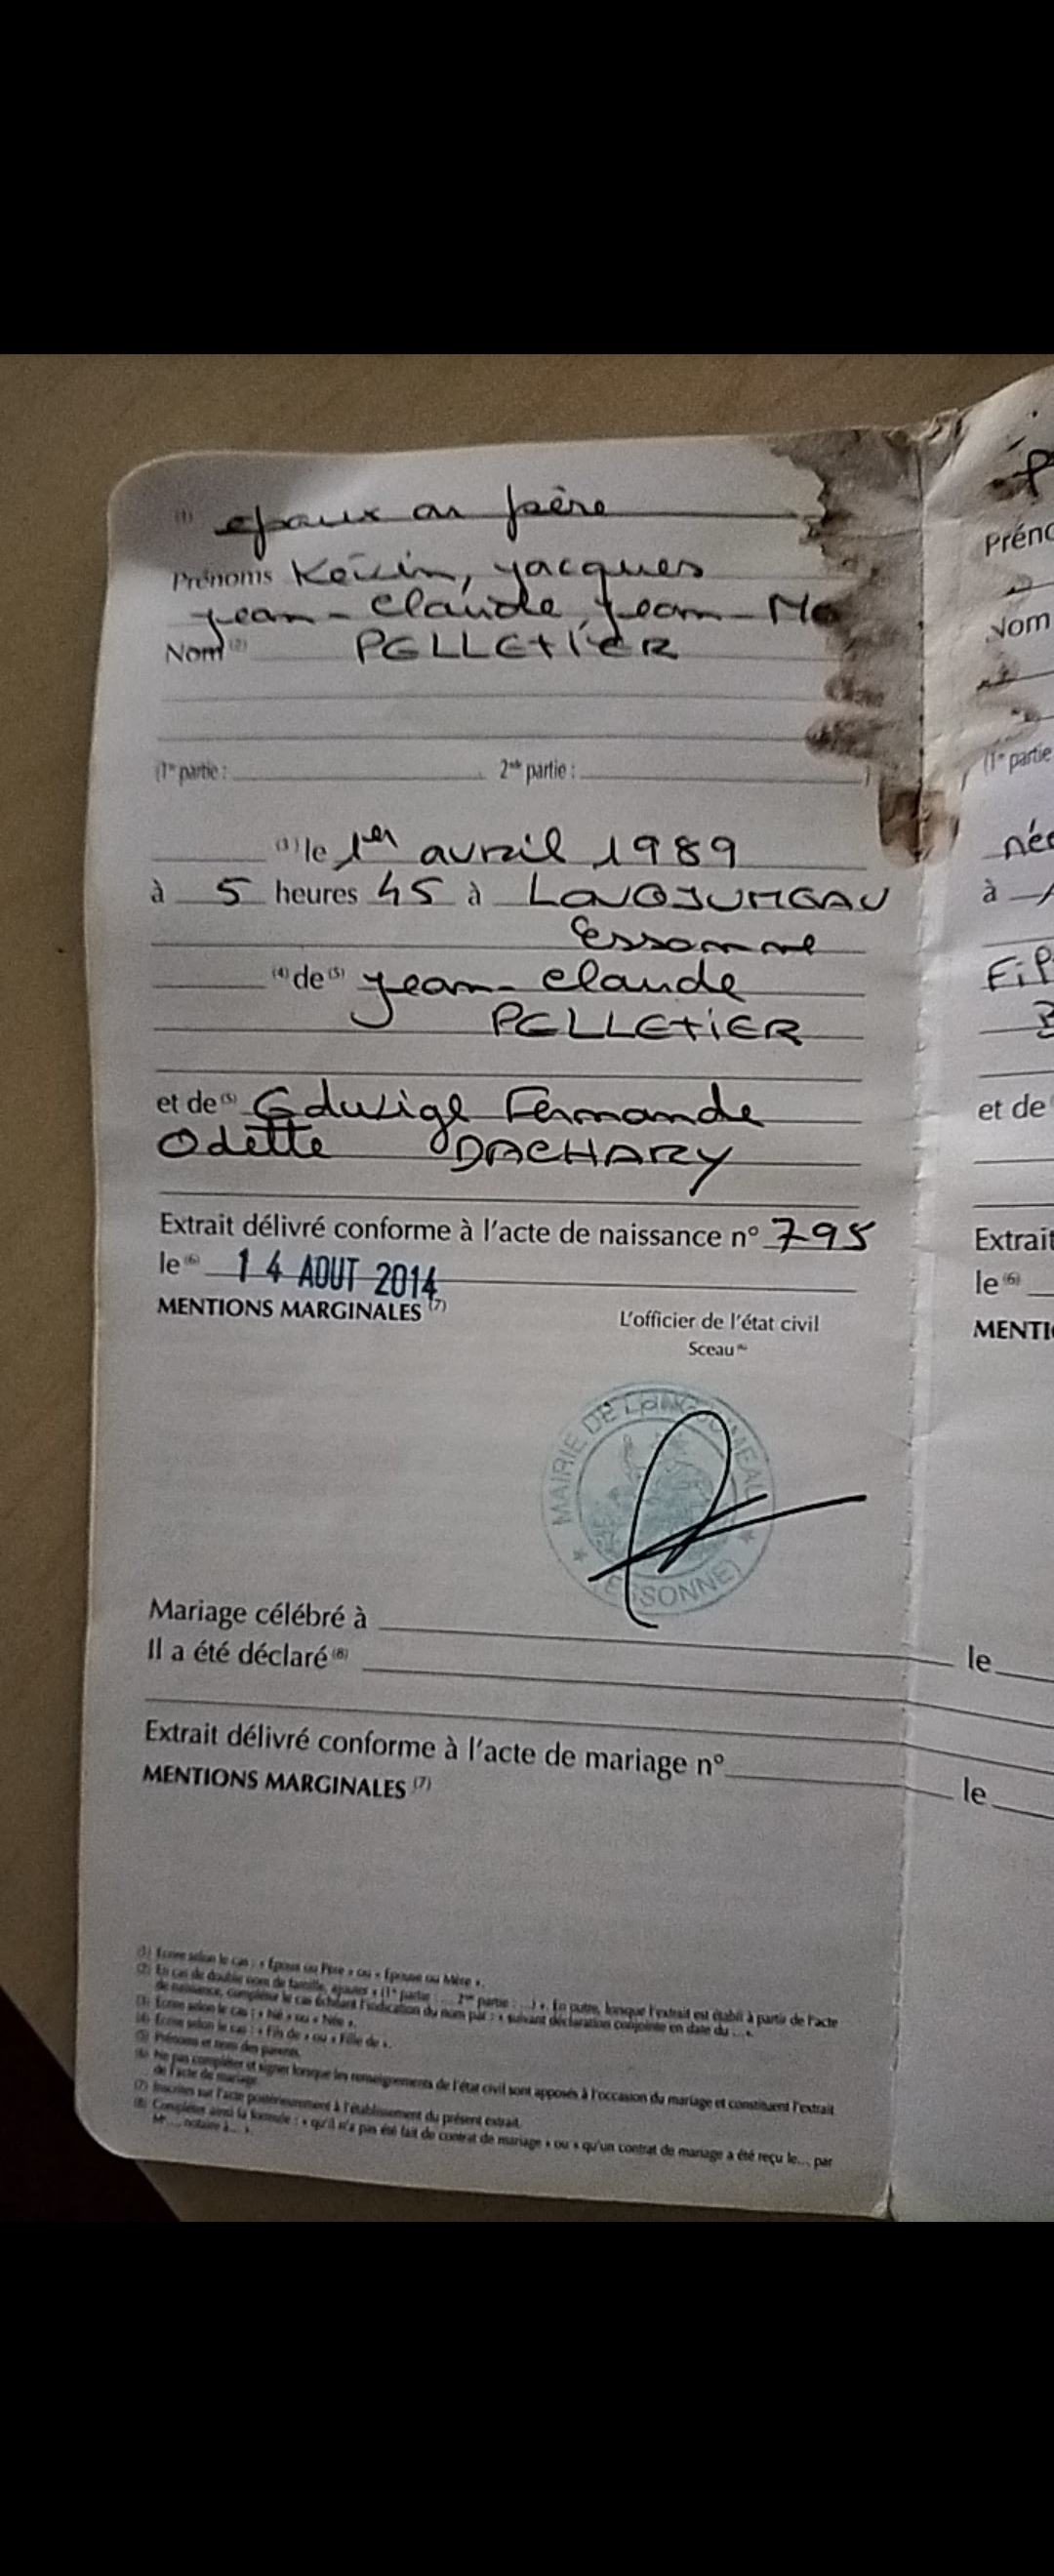 (1) epoux ou père
Prénoms Kévin, Jacques
Jean-Claude, Jean-Ma
Nom (2) PELLETIER
(1re partie : 2nde partie : )
(3) le 1er avril 1989
à 5 heures 45 à LONGJUMEAU
Essonne
(4) de (5) Jean-Claude
PELLETIER
et de (5) Edwige Fernande
Odette DACHARY
Extrait délivré conforme à l'acte de naissance n° 795
le (6) 14 AOUT 2014
MENTIONS MARGINALES (7)
L'officier de l'état civil
Sceau
MAIRIE DE LONGJUMEAU
(ESSONNE)
Mariage célébré à le
Il a été déclaré (8)
Extrait délivré conforme à l'acte de mariage n° le
MENTIONS MARGINALES (7)
(1) Écrire selon le cas : « Époux ou Père » ou « Épouse ou Mère ».
(2) En cas de double nom de famille, ajouter « (1re partie : ... 2nde partie : ...) ». En outre, lorsque l'extrait est établi à partir de l'acte
de naissance, compléter le cas échéant l'indication du nom par : « suivant déclaration conjointe en date du ... ».
(3) Écrire selon le cas : « Né » ou « Née ».
(4) Écrire selon le cas : « Fils de » ou « Fille de ».
(5) Prénoms et nom des parents.
(6) Ne pas compléter et signer lorsque les renseignements de l'état civil sont apposés à l'occasion du mariage et constituent l'extrait
de l'acte de mariage.
(7) Inscrites sur l'acte postérieurement à l'établissement du présent extrait.
(8) Compléter ainsi la formule : « qu'il n'a pas été fait de contrat de mariage » ou « qu'un contrat de mariage a été reçu le... par
Me ..., notaire à... ».
P
Préno
Nom
(1re partie
née
à
Fil
et de
Extrait
le (6)
MENTI